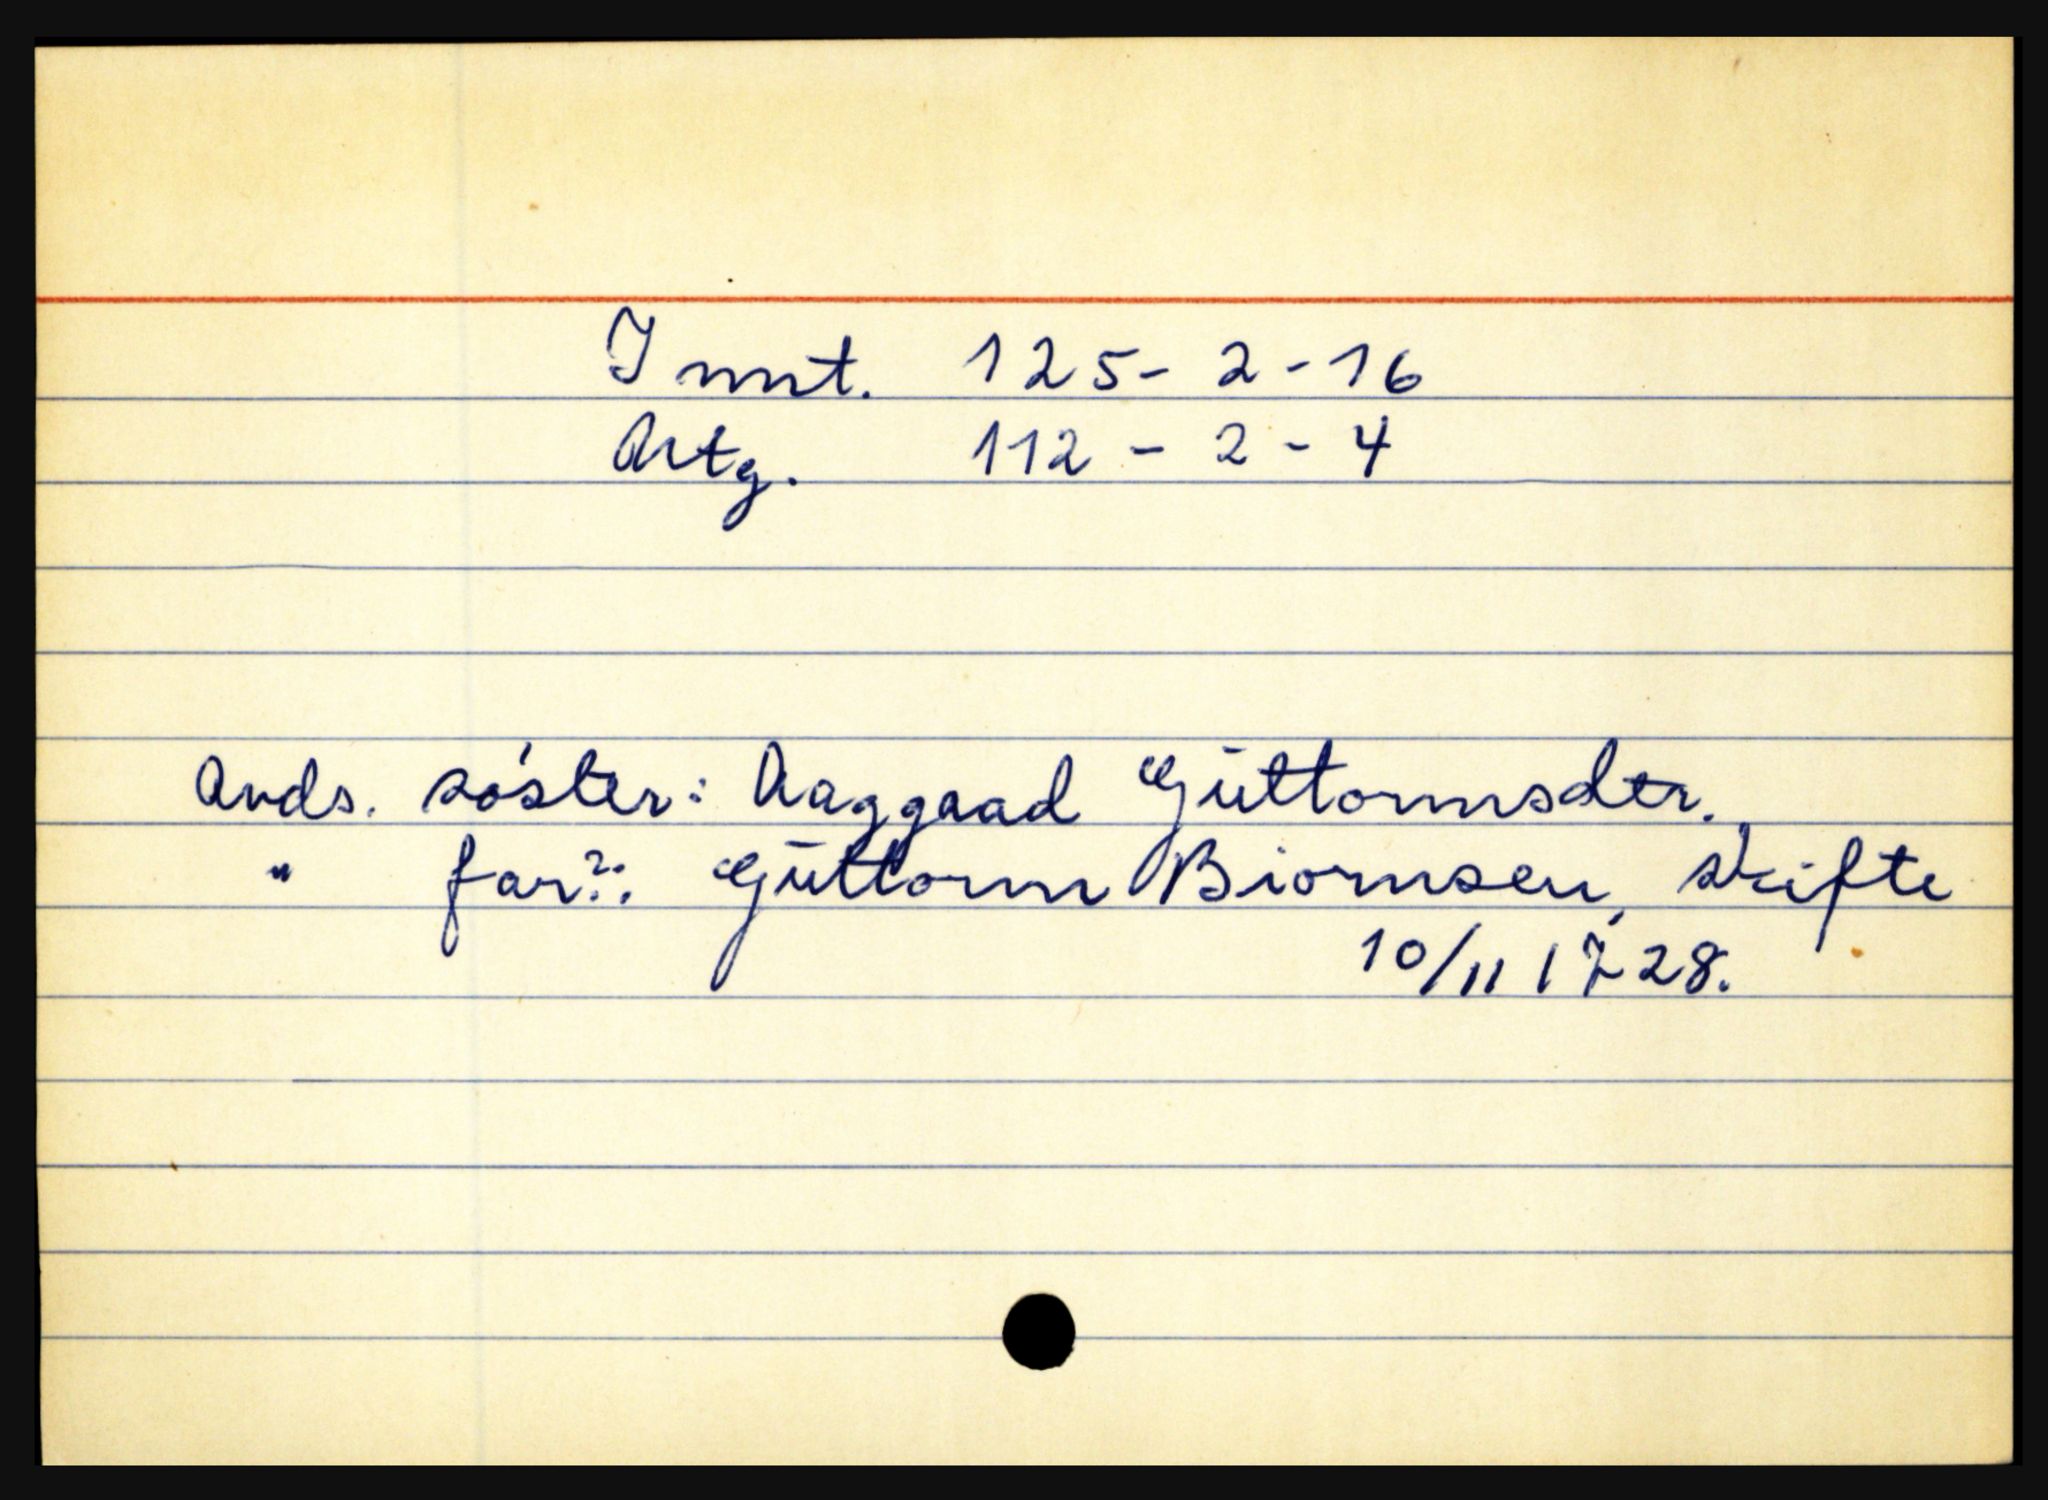 Innt. 125- 2 - 16
Artg. 112 - 2 - 4
Avds. søster: Aaggaad Guttormsdtr.
" far?: Guttorm Biornsen, skifte
10/11 1728.